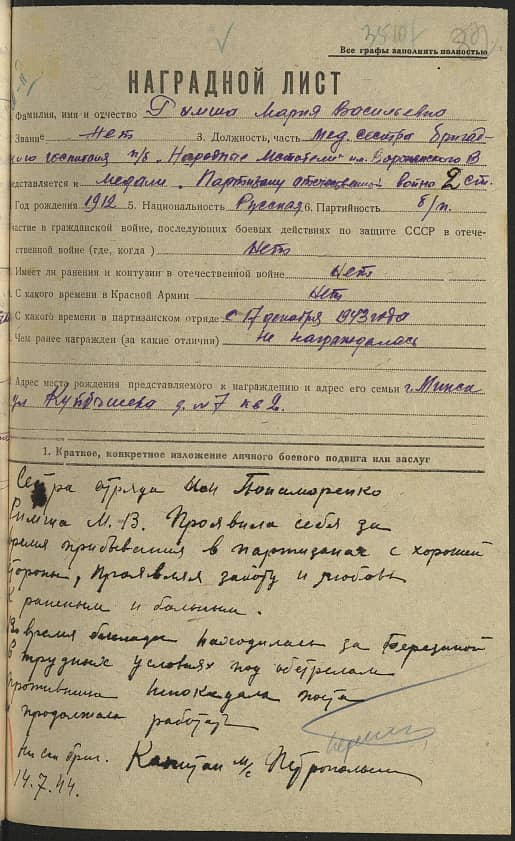 Все графы заполнять полностью
НАГРАДНОЙ ЛИСТ
Фамилия, имя и отчество Рымша Мария Васильевна
Звание Нет 3. Должность, часть мед. сестра бригад-
ного госпиталя п/б „Народные Мстители" им. Воронянского В
едставляется к медали „Партизану отечественной войны 2 ст.
Год рождения 1912 5. Национальность Русская 6. Партийность б/п.
частие в гражданской войне, последующих боевых действиях по защите СССР в отече-
ственной войне (где, когда) Нет
Имеет ли ранения и контузии в отечественной войне Нет
С какого времени в Красной Армии Нет
С какого времени в партизанском отряде с 17 декабря 1943 года
Чем ранее награжден (за какие отличия) не награждалась
Адрес место рождения представляемого к награждению и адрес его семьи г. Минск
ул Куйбышева д. №7 кв 2.
1. Краткое, конкретное изложение личного боевого подвига или заслуг
Сестра отряда Им Понамаренко
Римша М. В. Проявила себя за
время прибывания в партизанах с хорошей
тороны, проявляя заботу и любовь
к раненым и больным.
Во время блокады находилась за Березиной
в трудных условиях под обстрелам
противника непокидала поста
продолжала работать
Нч сч бриг. Капитан м/с
14.7.44.